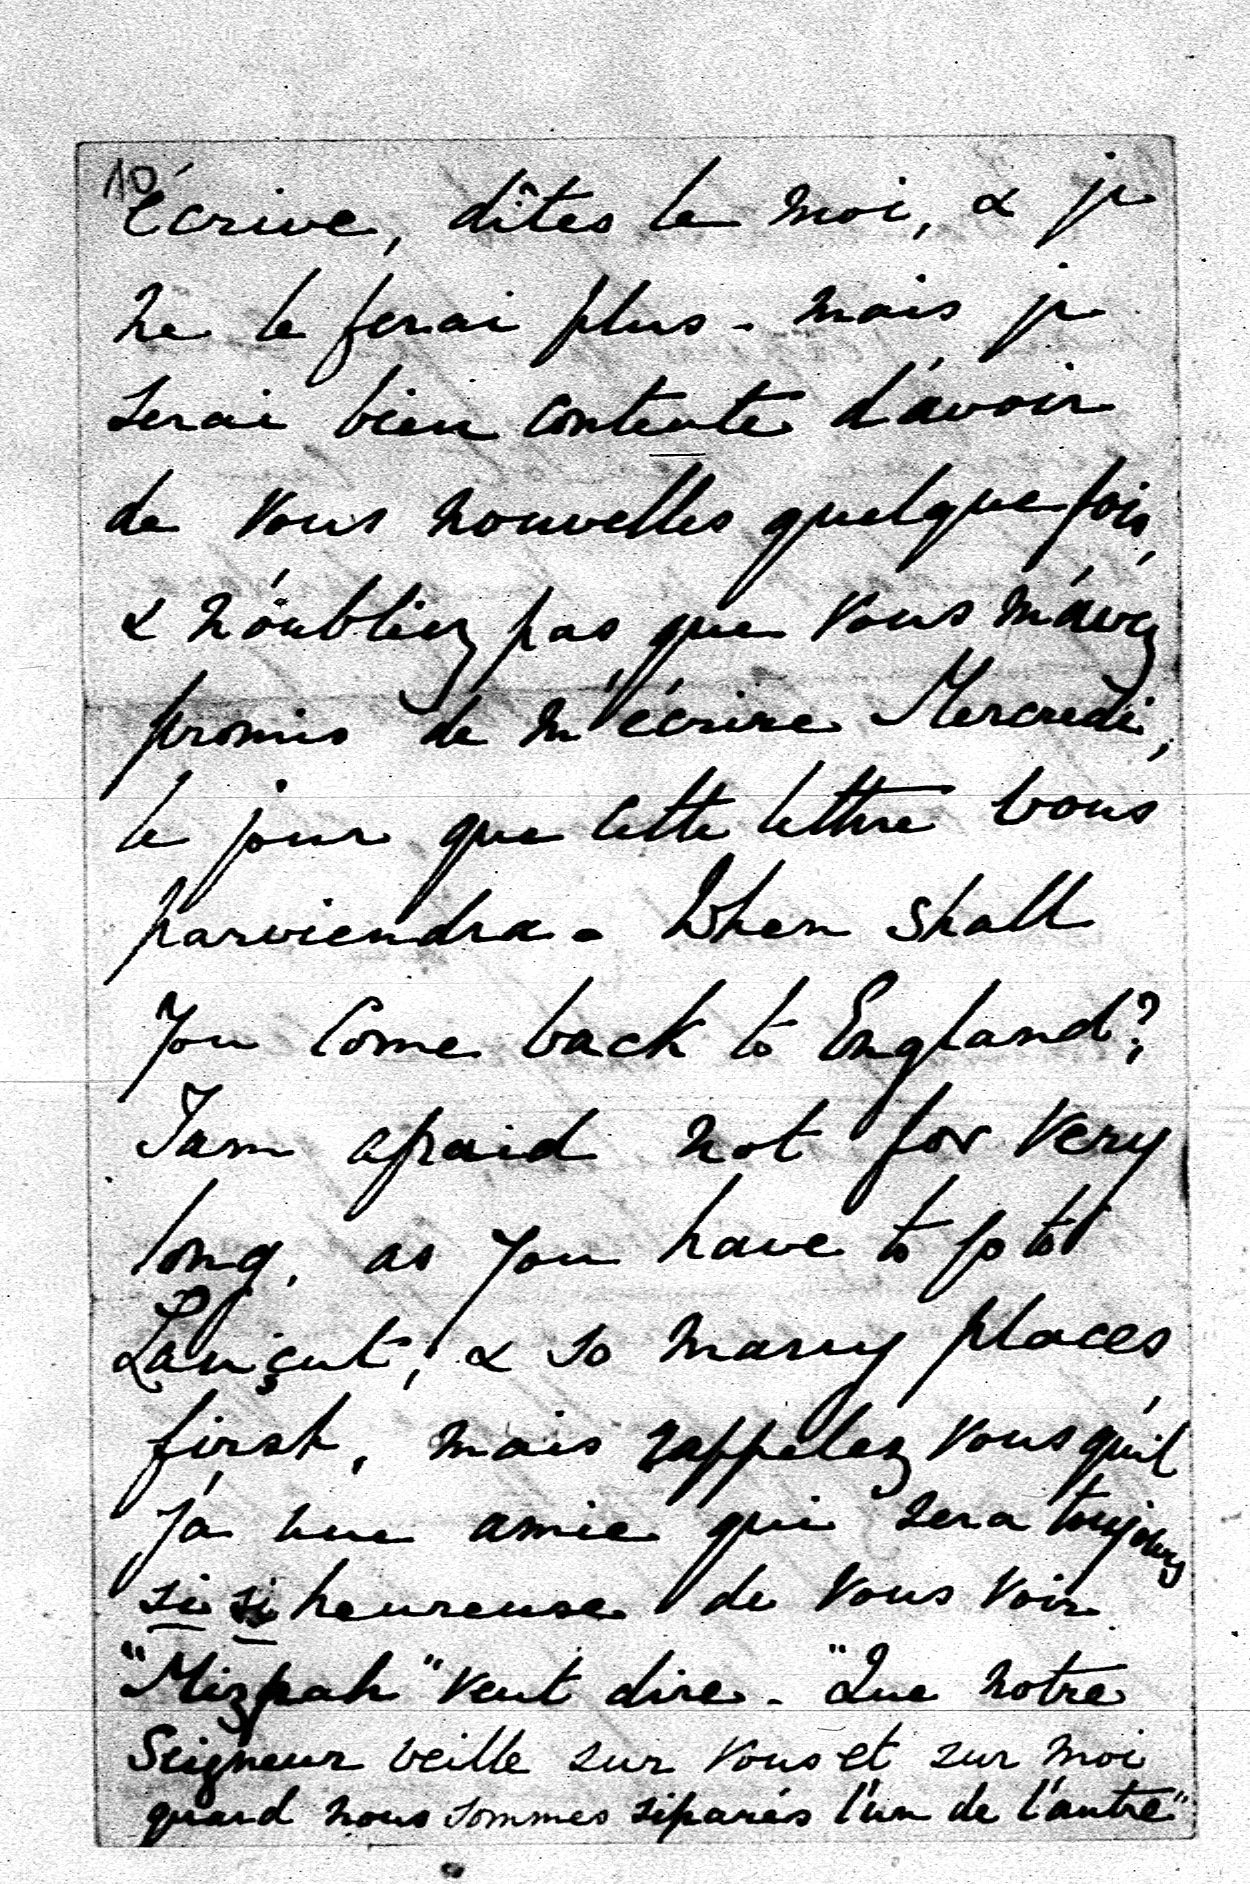 10
écrive, dîtes le moi, & je
ne le ferai plus - mais je
serai bien contente d'avoir
de vous nouvelles quelque fois,
& n'oubliez pas que vous m'avez
promis de m'écrire Mercredi,
le jour que cette lettre vous
parviendra - When shall
you come back to England?
I am afraid not for very
long, as you have to go to
Lançut, & so many places
first, mais rappelez vous qu'il
y a une amie qui sera toujours
si si heureuse de vous voir
"Mizpah" veut dire - "Que notre
Seigneur veille sur vous et sur moi
quand nous sommes séparés l'un de l'autre"